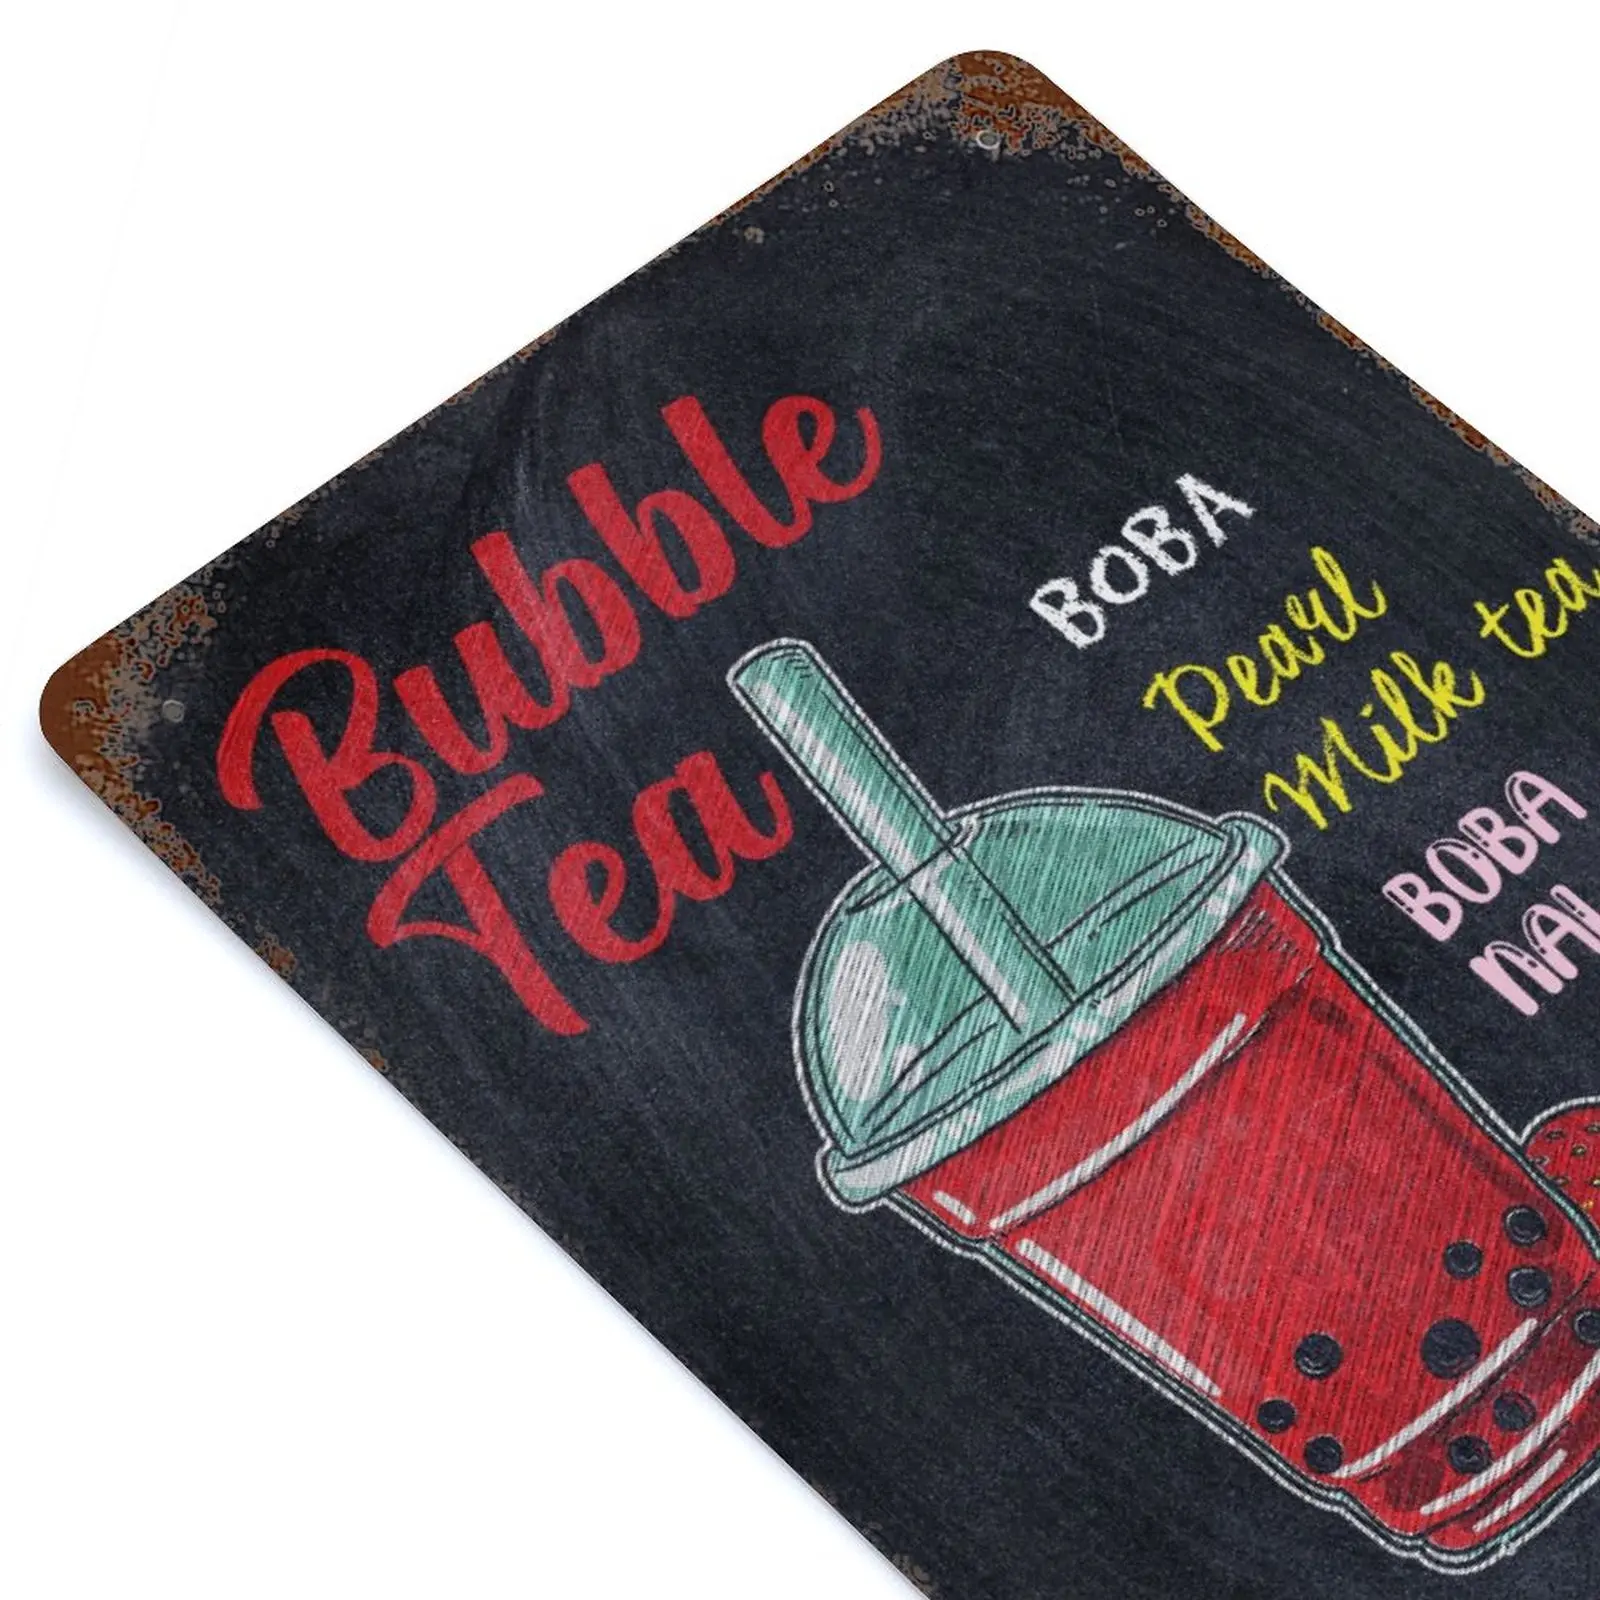 Bubble
Tea
BOBA
Pearl
Milk tea
BOBA